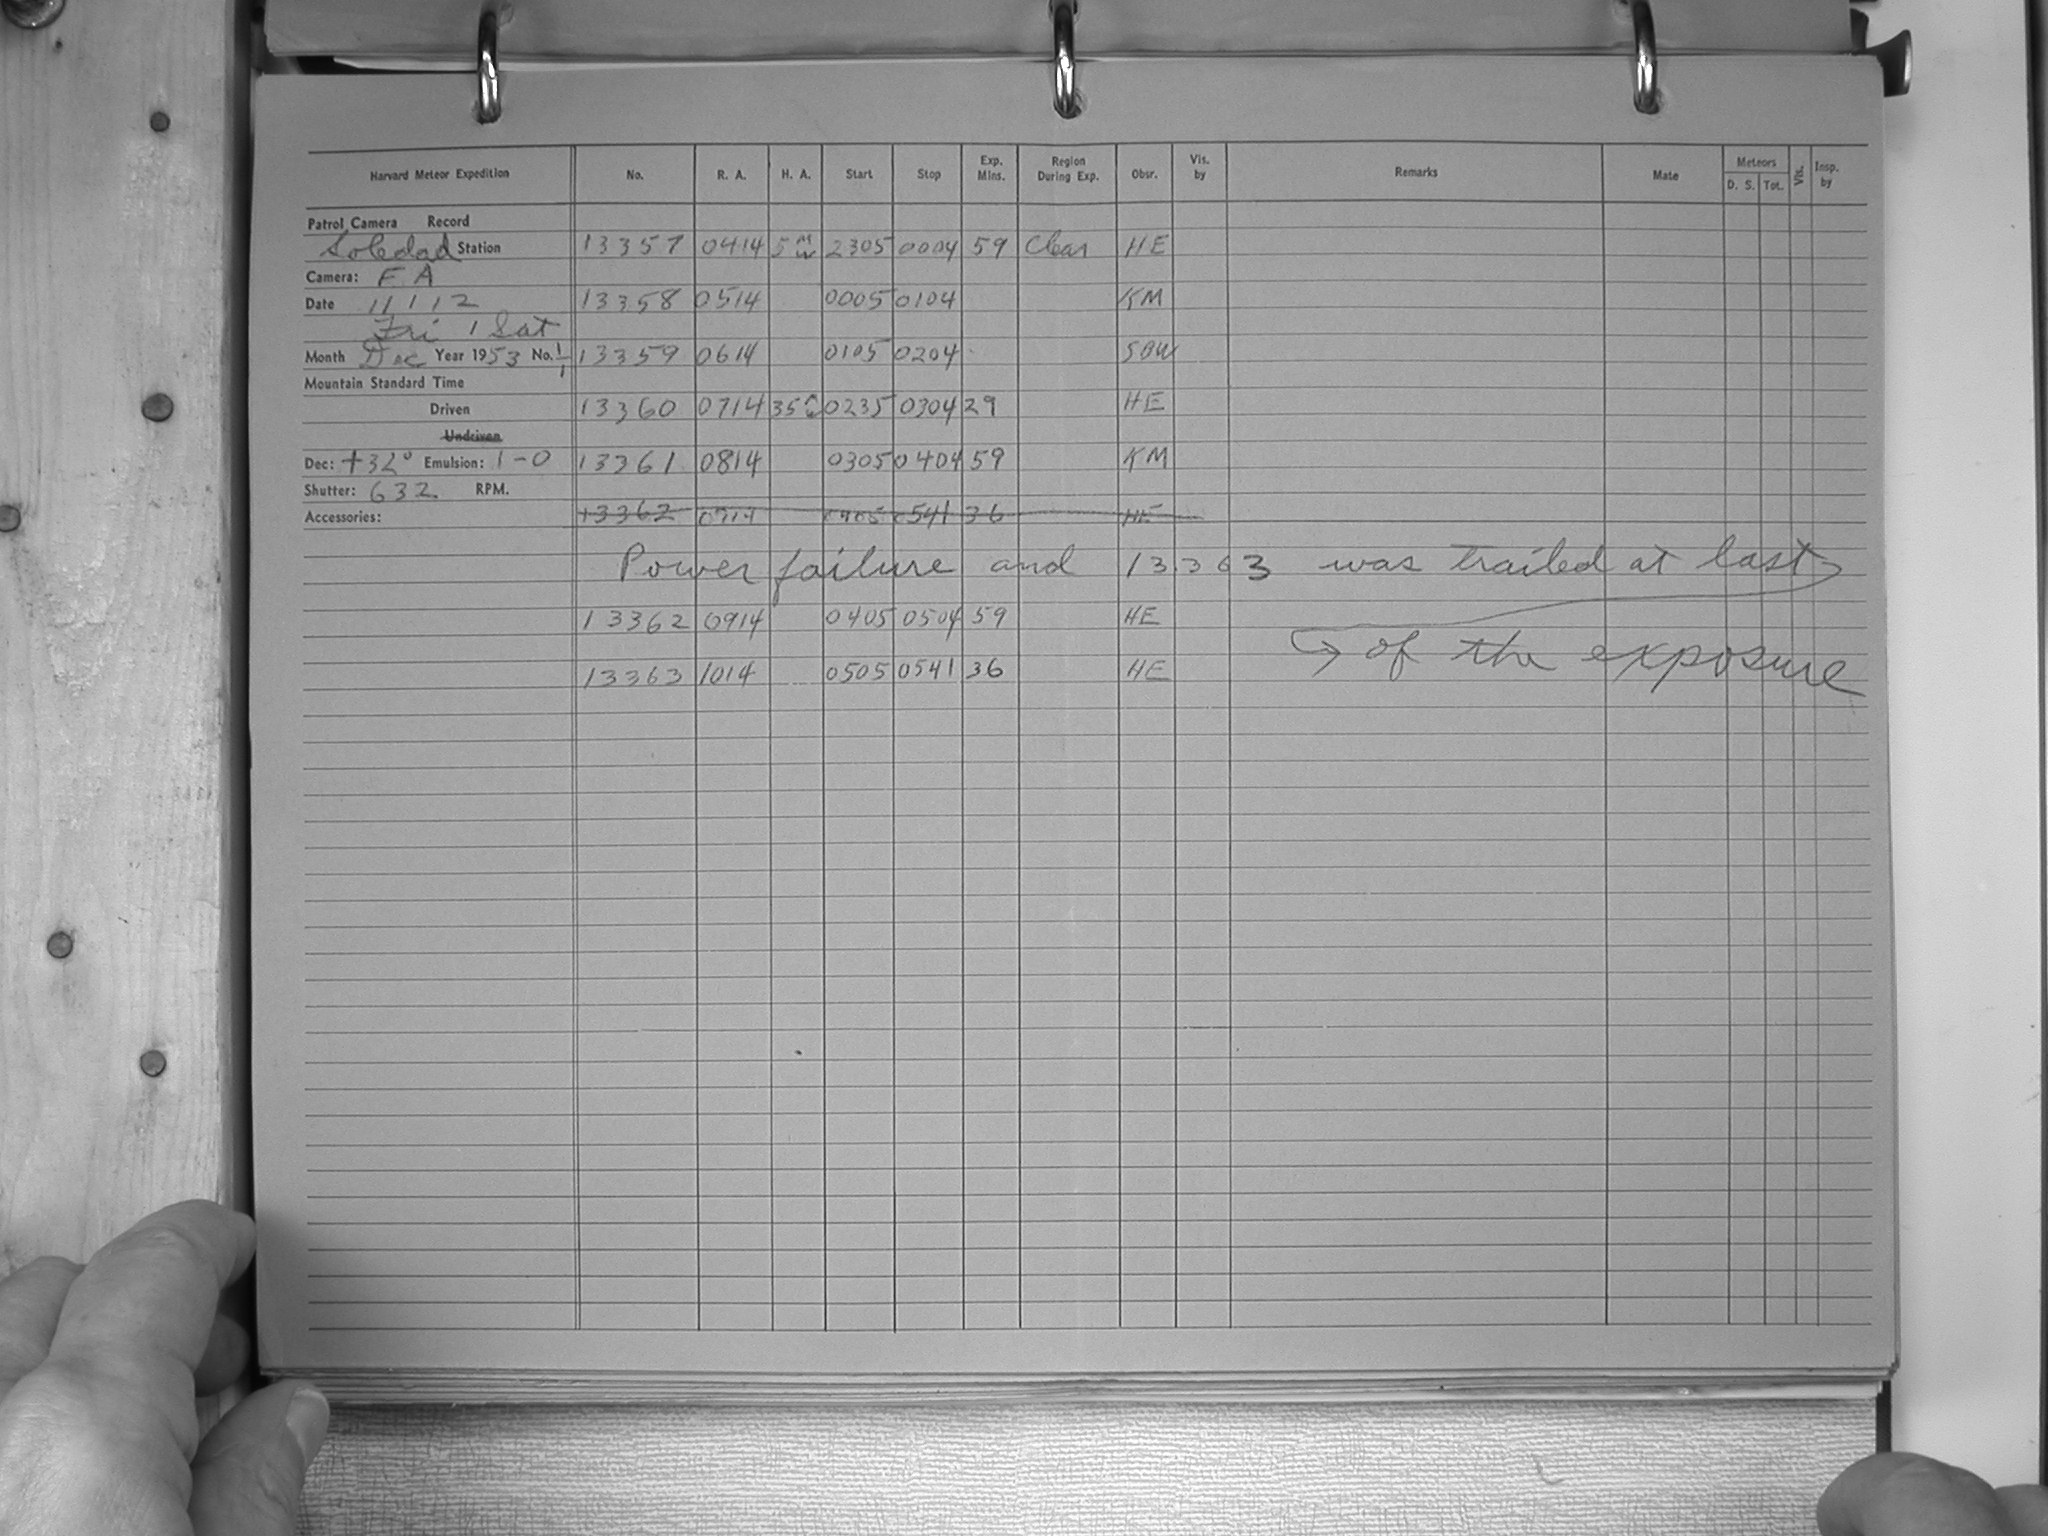 Harvard Meteor Expedition No. R. A. H. A. Start Stop Exp. Mins. Region During Exp. Obsr. Vis. by Remarks Mate Meteors D. S. Tot. Vis. Insp. by
Patrol Camera Record
Soledad Station 13357 0414 5 2305 0004 59 Clear HE
Camera: F A
Date 11 / 12 13358 0514 0005 0104 KM
Fri / Sat
Month Dec Year 1953 No. 1/1 13359 0614 0105 0204
Mountain Standard Time
Driven 13360 0714 35 0235 0304 29 HE
Undriven
Dec: +32° Emulsion: 1-0 13361 0814 0305 0404 59 KM
Shutter: 632 RPM.
Accessories: 13362 0914 0405 0541 36 HE
Power failure and 13363 was trailed at last
13362 0914 0405 0504 59 HE
of the exposure
13363 1014 0505 0541 36 HE